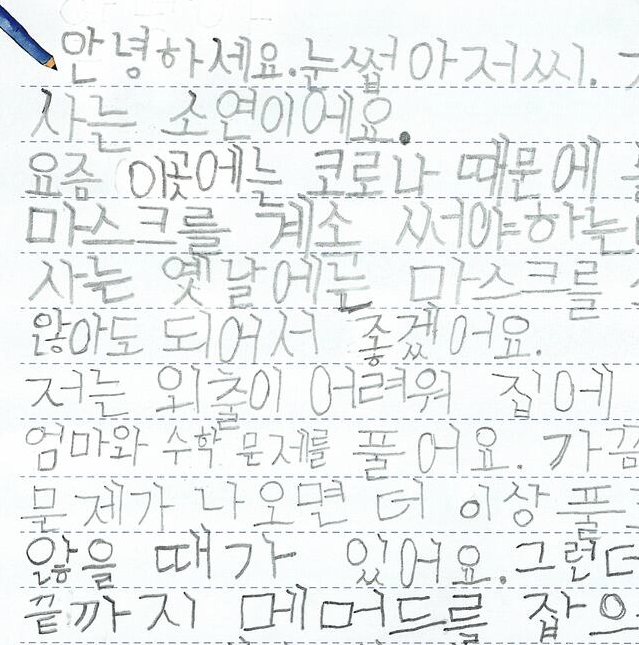 안녕하세요.눈썹 아저씨.
사는 소연이에요.
요즘 이곳에는 코로나 때문에
마스크를 계소 써야하는
사는 옛날에는 마스크를
않아도 되어서 좋겠어요.
저는 외출이 어려워 집에
엄마와 수학 문제를 풀어요. 가끔
문제가 나오면 더 이상 풀
않을 때가 있어요.그런데
끝까지 메머드를 잡으